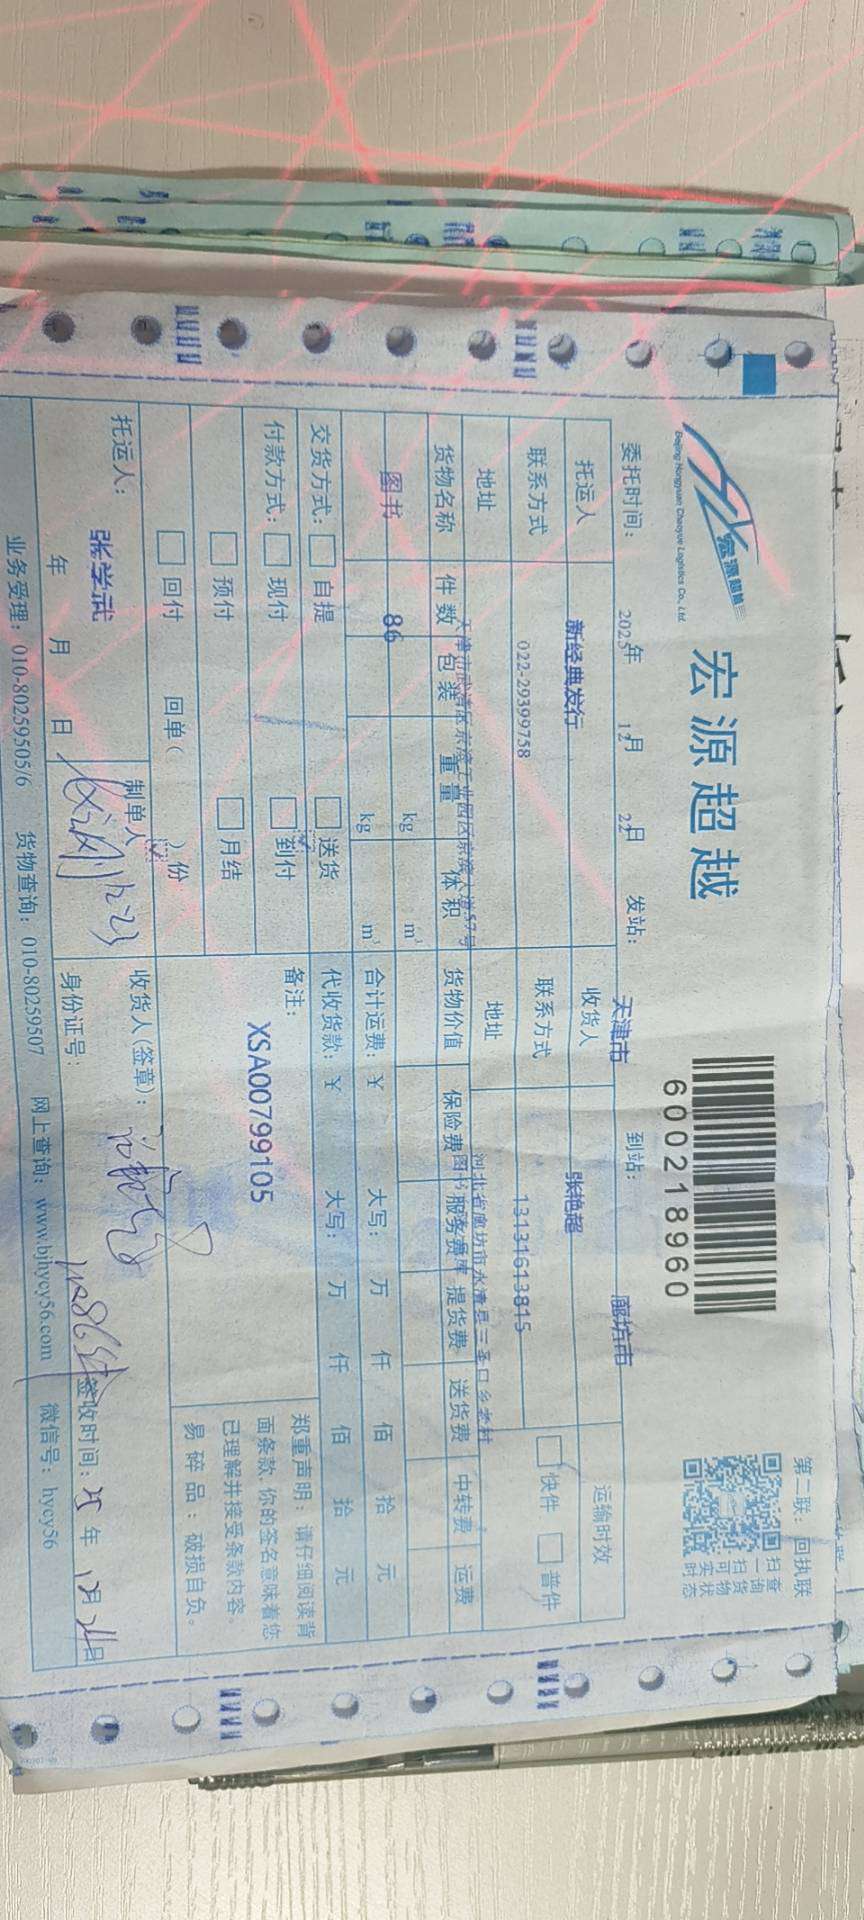 第二联：回执联
宏源超越
Beijing Hongyuan Chaoyue Logistics Co., Ltd.
宏源超越
6002189 60
扫一扫可实时
查询货物状态
委托时间： 2025年 12月 22日 发站： 天津市 到站： 廊坊市
托运人 新经典发行 收货人 张艳超 运输时效
联系方式 022-29399758 联系方式 13131613815 快件 普件
地址 天津市武清区京滨工业园区京滨大道57号 地址 河北省廊坊市永清县三圣口乡老村
货物名称 件数 包装 重量 体积 货物价值 保险费 服务费 提货费 送货费 中转费 运费
图书 86 kg m³
kg m³ 合计运费：¥ 大写： 万 仟 佰 拾 元
交货方式： 自提 送货 代收货款：¥ 大写： 万 仟 佰 拾 元
付款方式： 现付 到付
预付 月结
回付 回单（ ）份
备注：
XSA00799105
郑重声明：请仔细阅读背
面条款，你的签名意味着您
已理解并接受条款内容。
易碎品：破损自负。
托运人： 张学武 制单人 收货人（签章）：
年 月 日 身份证号： 签收时间：25年 12月24日
业务受理：010-80259505/6 货物查询：010-80259507 网上查询：www.bjhycy56.com 微信号：hycy56